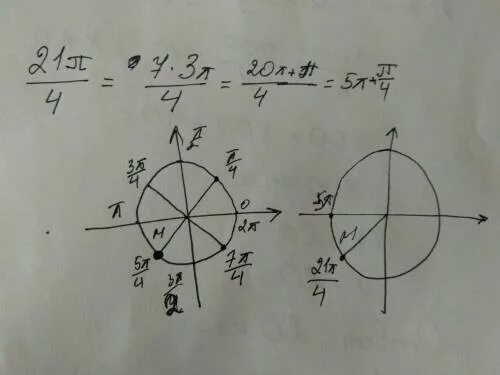 21π/4 = 7·3π/4 = 20π+π/4 = 5π+π/4
π/2
3π/4 π/4
π 0 5π
M 2π M
5π/4 3π/2 7π/4 21π/4